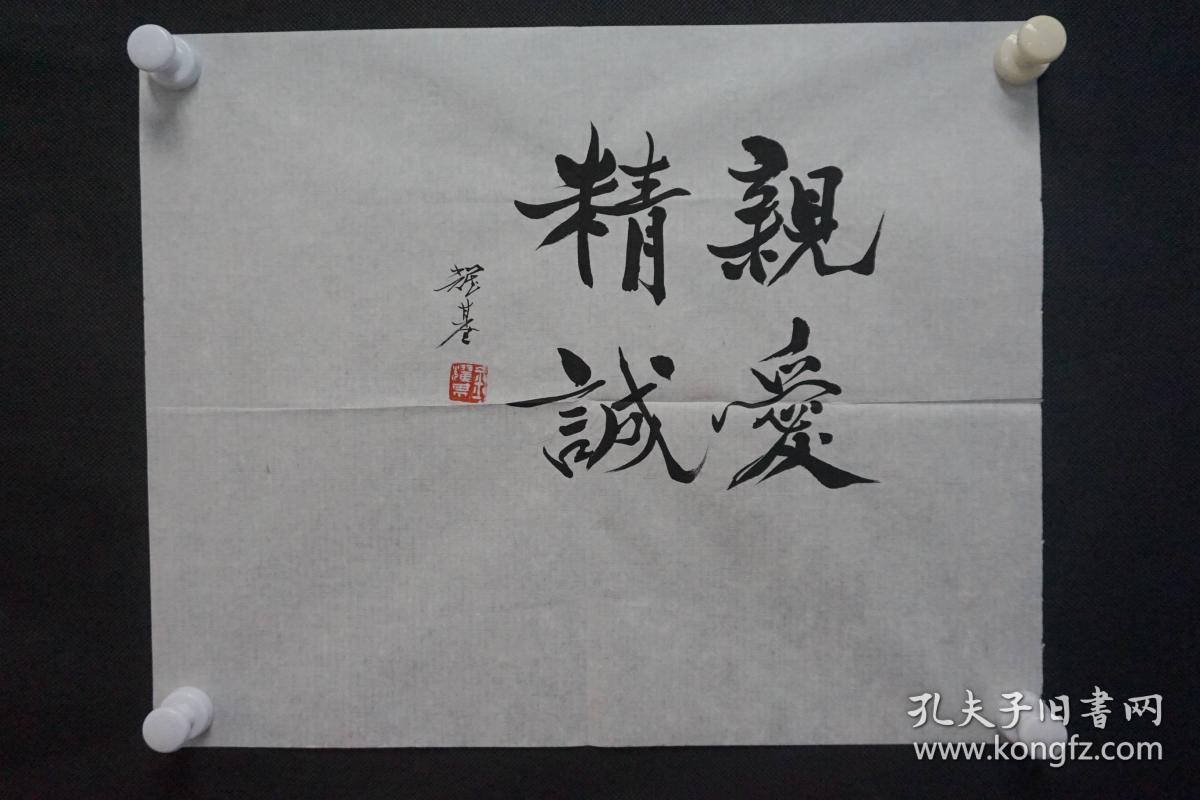 親愛
精誠
耀基
孔夫子旧書网
www.kongfz.com